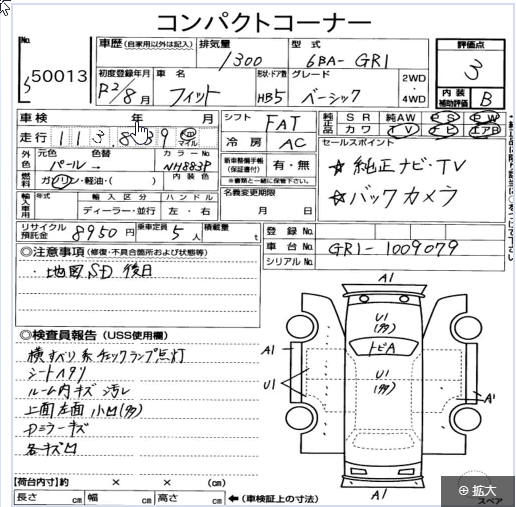 コンパクトコーナー
No. 50013
車歴 (自家用以外は記入)
排気量 1300
型式 6BA-GR1
評価点 3
初度登録年月 R2/8月
車名 フィット
形状・ドア数 HB5
グレード ベーシック
2WD・4WD
内装補助評価 B
車検 年 月
走行 113,839 km マイル
シフト FAT
冷房 AC
純正品 SR 純AW PS PW
カワ TV ナビ エアB
セールスポイント
☆純正ナビ・TV
☆バックカメラ
外色 元色 パール→ 色替
カラーNo. NH883P
燃料 ガソリン・軽油・( )
内装色
新車整備手帳(保証書付) 有・無
※書類と一緒に保管下さい。
輸入車用 年式 輸入区分 ハンドル
ディーラー・並行 左・右
名義変更期限
月 日
リサイクル預託金 8950円
乗車定員 5人
積載量 t
登録No.
車台No. GR1-1009079
シリアルNo.
◎注意事項(修復・不具合箇所および状態等)
・地図SD 後日
◎検査員報告 (USS使用欄)
横すべり系チェックランプ点灯
シートヘタリ
ルーム内キズ 汚レ
上面左面 小凹(多)
Dミラーキズ
各キズ凹
A1
U1(多)
トビA
U1(多)
A1
U1
A'
A1
スペア
【荷台内寸】約 × × (cm)
長さ cm 幅 cm 高さ cm ←(車検証上の寸法)
拡大